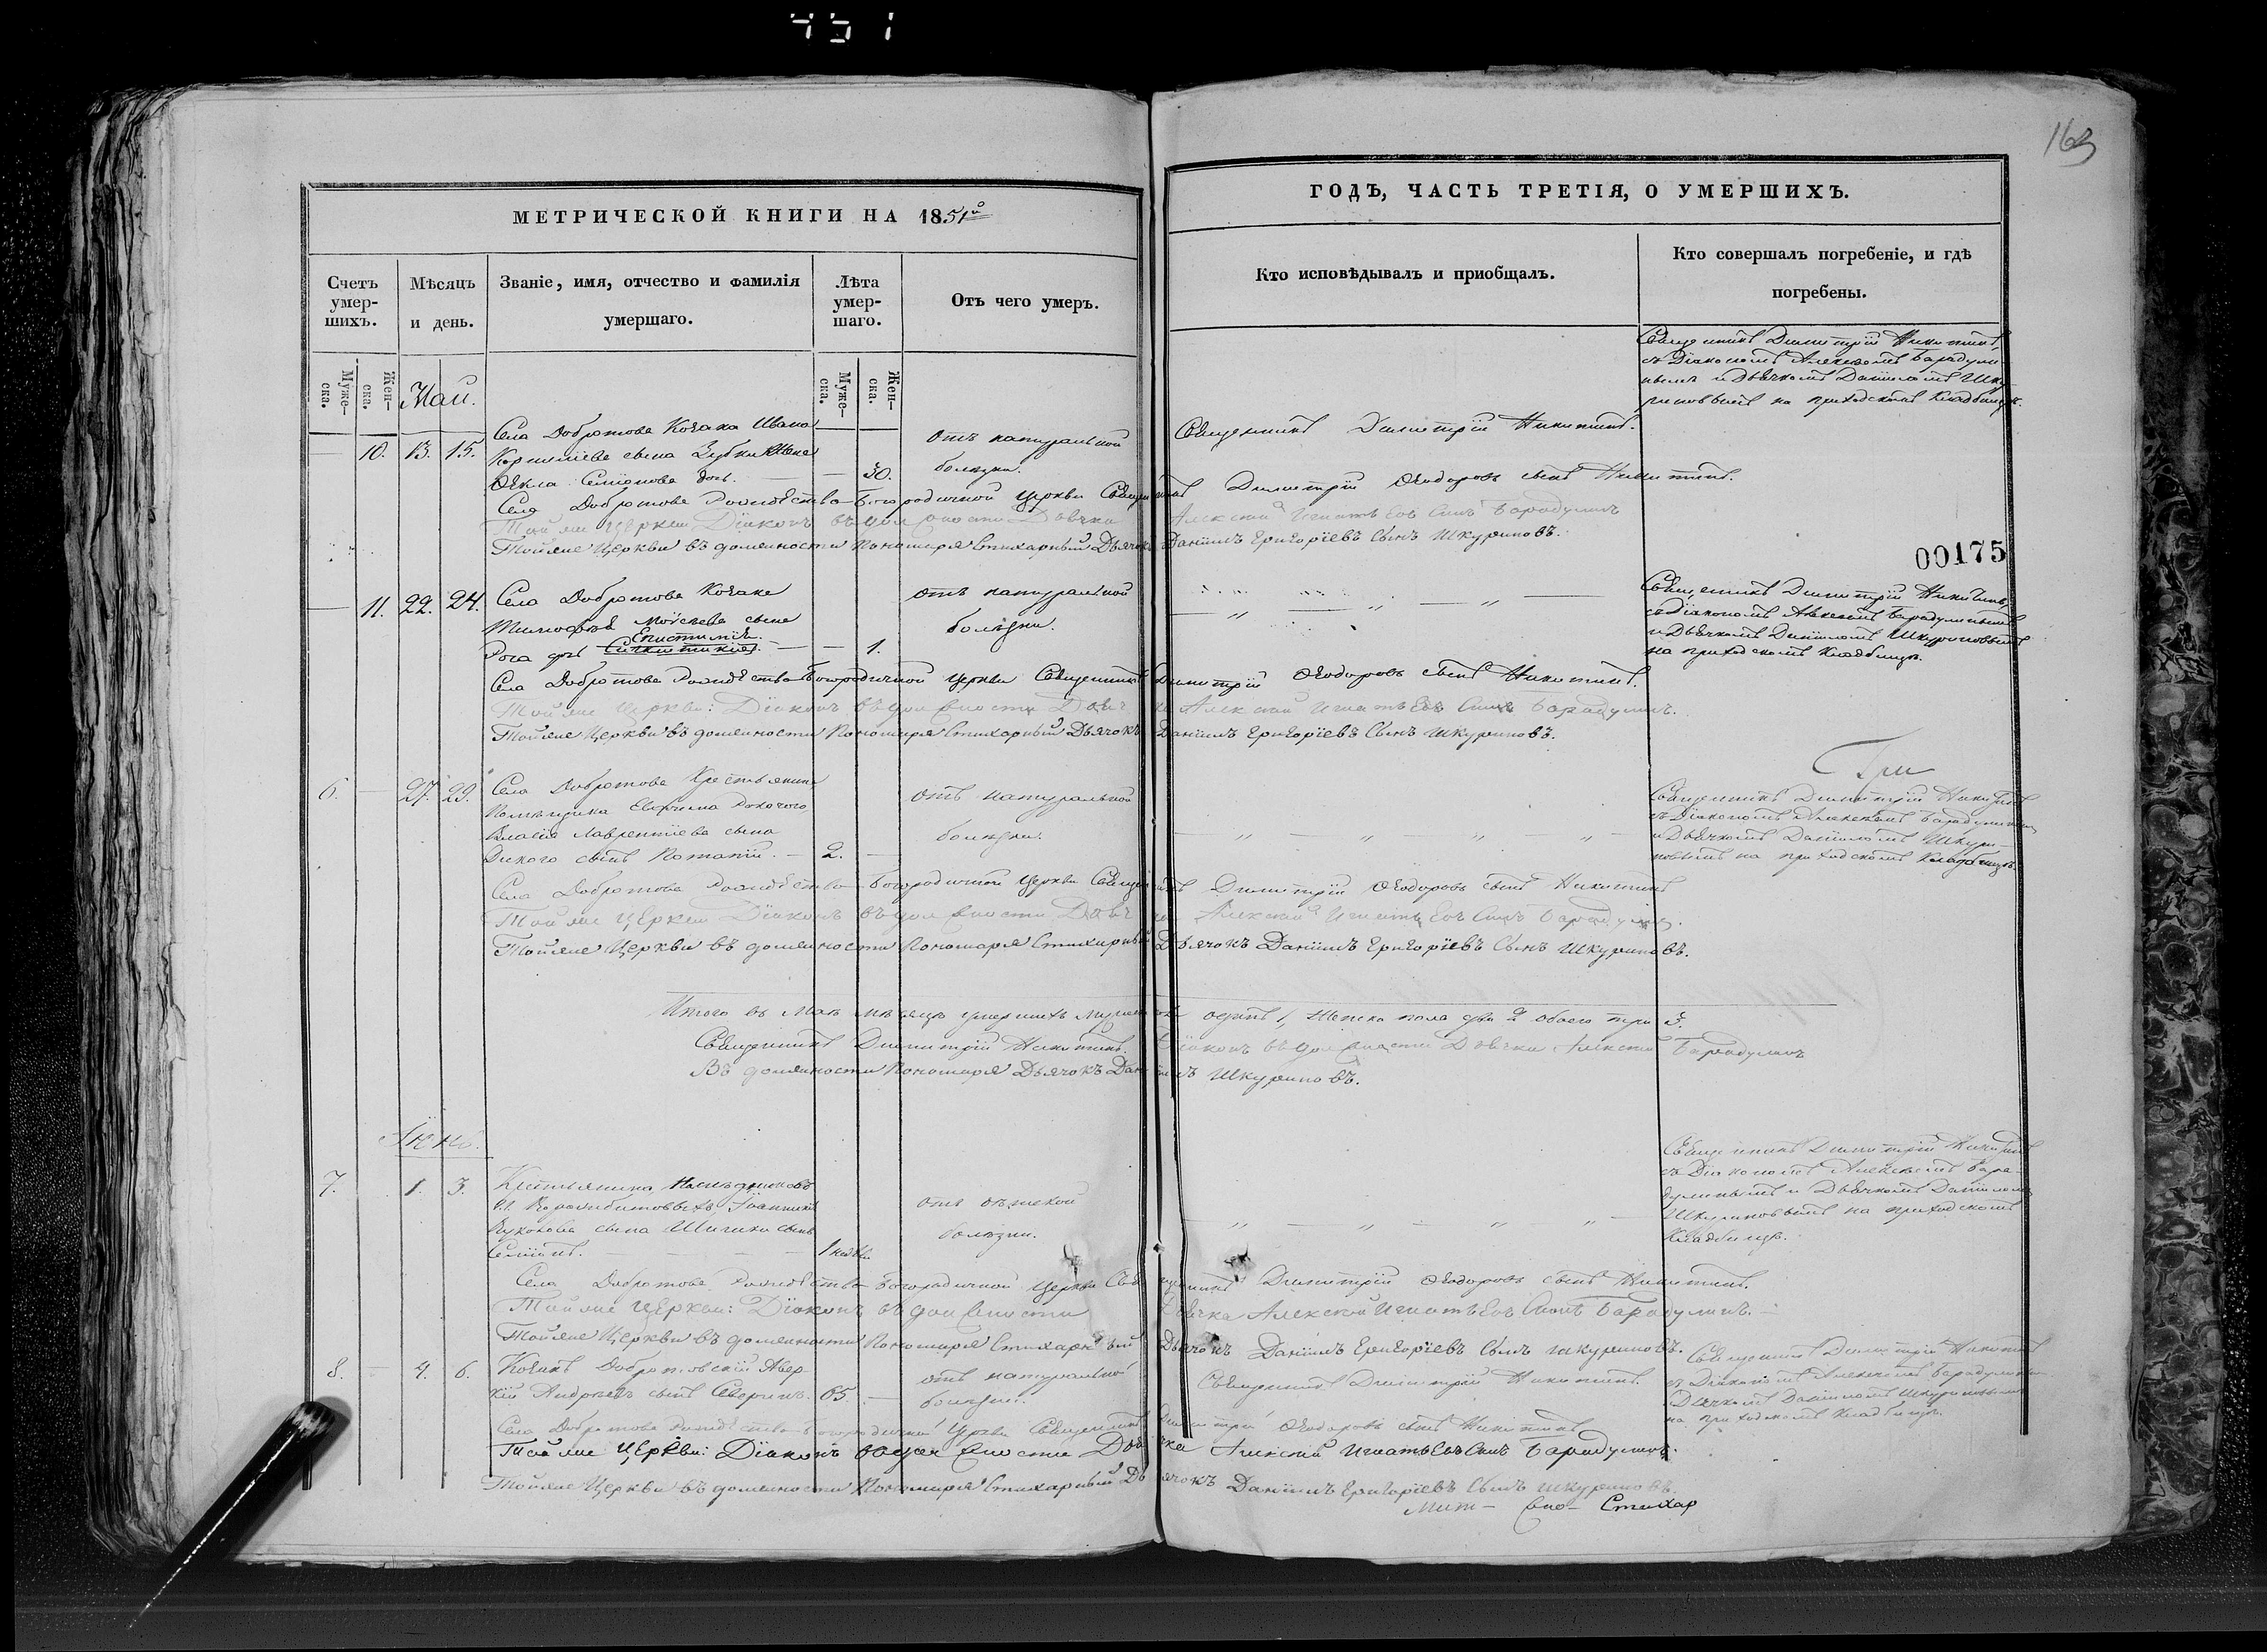 163
МЕТРИЧЕСКОЙ КНИГИ НА 1851й
ГОДЪ, ЧАСТЬ ТРЕТІЯ, О УМЕРШИХЪ.
Счетъ умер-шихъ.
Мѣсяцъ и день.
Званіе, имя, отчество и фамилія умершаго.
Лѣта умер-шаго.
Отъ чего умеръ.
Кто исповѣдывалъ и приобщалъ.
Кто совершалъ погребеніе, и гдѣ погребены.
Муже-ска.
Жен-ска.
Муже-ска.
Жен-ска.
Май.
Священникъ Димитрій Никитинъ,
съ Діакономъ Алексѣемъ Барадули-
нымъ и Дьячкомъ Даніиломъ Шку-
риновымъ на приходскомъ кладбищѣ.
10. 13. 15.
Села Добротова Козака Ивана
Корнилiева сына жена
Ѳекла Семіонова дочь. 30.
отъ натуральной
болѣзни.
Священникъ Димитрій Никитинъ.
Села Добротова Рождество-Богородичной Церкви Священникъ Димитрій Ѳеодоровъ сынъ Никитинъ.
Той же Церкви Діаконъ въ должности Дьячка Алексѣй Игнатьевъ Сынъ Барадулинъ
Тойже Церкви въ должности Пономаря Стихарный Дьячокъ Даніилъ Григорiевъ Сынъ Шкуриновъ.
00175
11. 22. 24.
Села Добротова Козака
Тимофея Моѵсеева сына
Рога дочь Епистимія. 1.
отъ натуральной
болѣзни.
Священникъ Димитрій Никитинъ,
съ Діакономъ Алексѣемъ Барадулинымъ
и Дьячкомъ Даніиломъ Шкуриновымъ
на приходскомъ кладбищѣ.
Села Добротова Рождество-Богородичной Церкви Священникъ Димитрій Ѳеодоровъ сынъ Никитинъ.
Той же Церкви: Діаконъ въ должности Дьячка Алексѣй Игнатьевъ Сынъ Барадулинъ.
Тойже Церкви въ должности Пономаря Стихарный Дьячокъ Даніилъ Григорiевъ Сынъ Шкуриновъ.
Гри
6. 27. 29.
Села Добротова Крестьянина
Помѣщика Евфима
Власія Лаврентіева сына
Дикого сынъ Потапій. 2.
отъ натуральной
болѣзни.
Священникъ Димитрій Никитинъ
съ Діакономъ Алексѣемъ Барадулинымъ
и Дьячкомъ Даніиломъ Шкури-
новымъ на приходскомъ кладбищѣ.
Села Добротова Рождество-Богородичной Церкви Священникъ Димитрій Ѳеодоровъ сынъ Никитинъ
Той же Церкви Діаконъ въ должности Дьячка Алексѣй Игнатьевъ Сынъ Барадулинъ.
Тойже Церкви въ должности Пономаря Стихарный Дьячокъ Даніилъ Григорiевъ Сынъ Шкуриновъ.
Итого въ Маѣ мѣсяцѣ умершихъ мужеска одинъ 1, женска пола два 2 обоего три 3.
Священникъ Димитрій Никитинъ. Діаконъ въ должности Дьячка Алексѣй Барадулинъ
Въ должности Пономаря Дьячокъ Даніилъ Шкуриновъ.
Іюнь.
7. 1. 3.
Крестьянина
сына сынъ
Семіонъ. 1 недѣли
отъ дѣтской
болѣзни.
Священникъ Димитрій Никитинъ
съ Діакономъ Алексѣемъ Бара-
дулинымъ и Дьячкомъ Даніиломъ
Шкуриновымъ на приходскомъ
кладбищѣ.
Села Добротова Рождество-Богородичной Церкви Священникъ Димитрій Ѳеодоровъ сынъ Никитинъ.
Той же Церкви: Діаконъ въ должности Дьячка Алексѣй Игнатьевъ Сынъ Барадулинъ.
Тойже Церкви въ должности Пономаря Стихарный Дьячокъ Даніилъ Григорiевъ Сынъ Шкуриновъ.
8. 4. 6.
Козакъ Добротовскій Авер-
кій Андреевъ сынъ 65.
отъ натуральной
болѣзни.
Священникъ Димитрій Никитинъ.
Священникъ Димитрій Никитинъ
съ Діакономъ Алексѣемъ Барадулинымъ
и Дьячкомъ Даніиломъ Шкуриновымъ
на приходскомъ кладбищѣ.
Села Добротова Рождество-Богородичной Церкви Священникъ Димитрій Ѳеодоровъ сынъ Никитинъ
Той же Церкви: Діаконъ въ должности Дьячка Алексѣй Игнатьевъ Сынъ Барадулинъ.
Тойже Церкви въ должности Пономаря Стихарный Дьячокъ Даніилъ Григорiевъ Сынъ Шкуриновъ.
Стихар